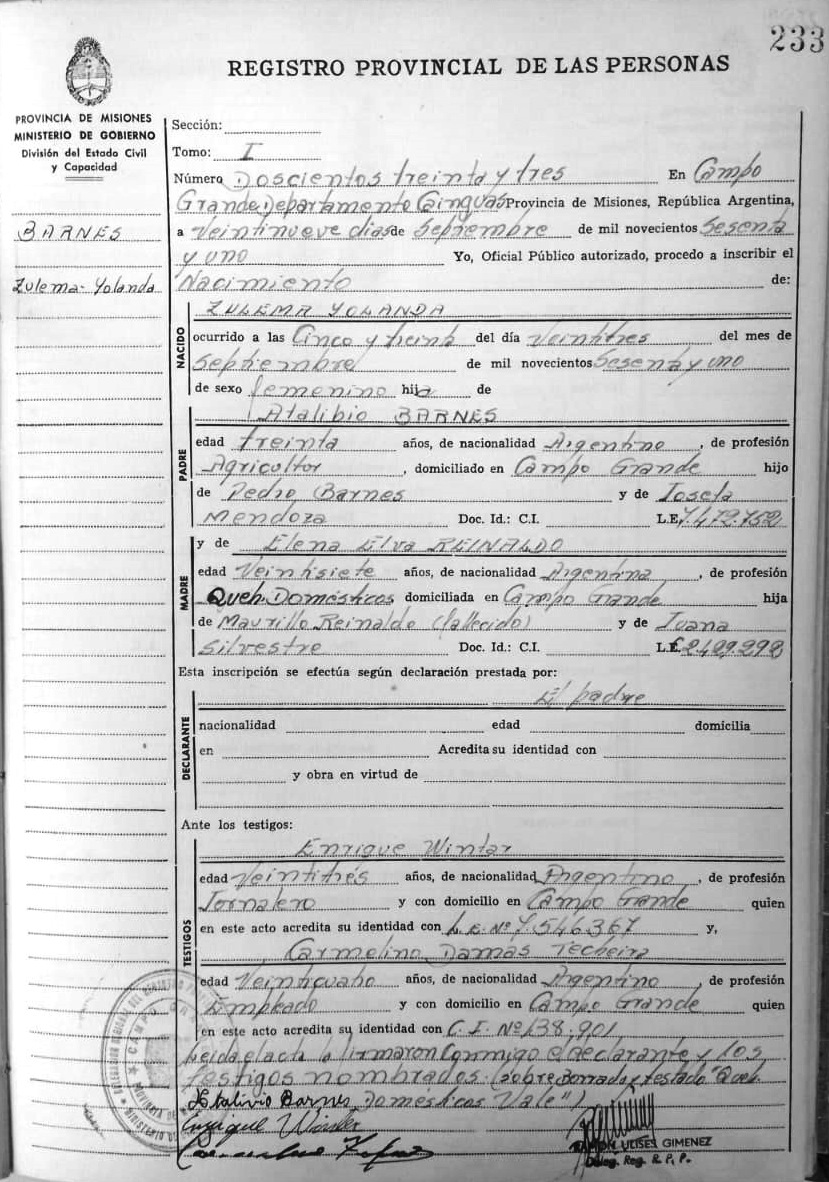 233
REGISTRO PROVINCIAL DE LAS PERSONAS
PROVINCIA DE MISIONES
MINISTERIO DE GOBIERNO
División del Estado Civil
y Capacidad
BARNES
Zulema Yolanda
Sección:
Tomo: I
Número Doscientos treinta y tres En Campo
Grande Departamento Cainguas Provincia de Misiones, República Argentina,
a Veintinueve dias de Septiembre de mil novecientos Sesenta
y uno Yo, Oficial Público autorizado, procedo a inscribir el
Nacimiento de:
NACIDO
ZULEMA YOLANDA
ocurrido a las Cinco y treinta del día Veintitres del mes de
Septiembre de mil novecientos Sesenta y uno
de sexo femenino hija de
PADRE
Atalibio BARNES
edad treinta años, de nacionalidad Argentino, de profesión
Agricultor, domiciliado en Campo Grande hijo
de Pedro Barnes y de Josefa
Mendoza Doc. Id.: C.I. L.E. 7.472.752
MADRE
y de Elena Elva REINALDO
edad Veintisiete años, de nacionalidad Argentina, de profesión
Queh. Domésticos domiciliada en Campo Grande hija
de Maurillo Reinaldo (fallecido) y de Juana
Silvestre Doc. Id.: C.I. L.E. 2.429.298
Esta inscripción se efectúa según declaración prestada por:
El padre
DECLARANTE
nacionalidad edad domicilia
en Acredita su identidad con
y obra en virtud de
Ante los testigos:
TESTIGOS
Enrique Winter
edad Veintitrés años, de nacionalidad Argentino, de profesión
Jornalero y con domicilio en Campo Grande quien
en este acto acredita su identidad con L.E. Nº 7.546.367 y,
Carmelino Damás Techeira
edad Veinticuatro años, de nacionalidad Argentino, de profesión
Empleado y con domicilio en Campo Grande quien
en este acto acredita su identidad con C.I. Nº 138.901
Leida el acta la firmaron conmigo el declarante y los
testigos nombrados. (sobre borrado y testado "Queh.
Atalivio Barnes Domesticos Vale")
Enrique Winter
RAMON ULISES GIMENEZ
Deleg. Reg. R. P. P.